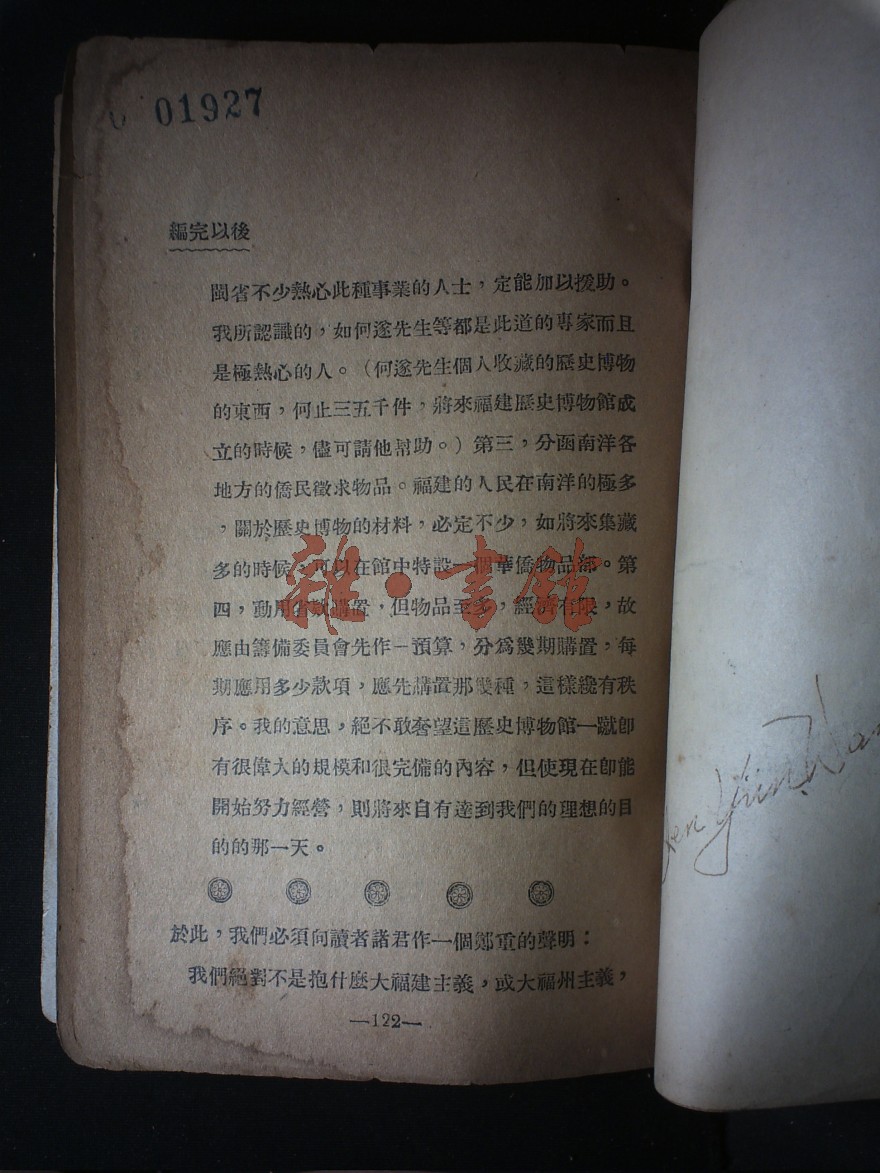 01927
編完以後
閩省不少熱心此種事業的人士，定能加以援助。
我所認識的，如何遂先生等都是此道的專家而且
是極熱心的人。（何遂先生個人收藏的歷史博物
的東西，何止三五千件，將來福建歷史博物館成
立的時候，儘可請他幫助。）第三，分函南洋各
地方的僑民徵求物品。福建的人民在南洋的極多
，關於歷史博物的材料，必定不少，如將來集藏
多的時候，可以在館中特設一個華僑物品部。第
四，動用省款購置，但物品至多，經濟有限，故
應由籌備委員會先作一預算，分爲幾期購置，每
期應用多少款項，應先購置那幾種，這樣纔有秩
序。我的意思，絕不敢奢望這歷史博物館一蹴卽
有很偉大的規模和很完備的內容，但使現在卽能
開始努力經營，則將來自有達到我們的理想的目
的的那一天。
於此，我們必須向讀者諸君作一個鄭重的聲明：
我們絕對不是抱什麼大福建主義，或大福州主義，
—122—
雜·書館